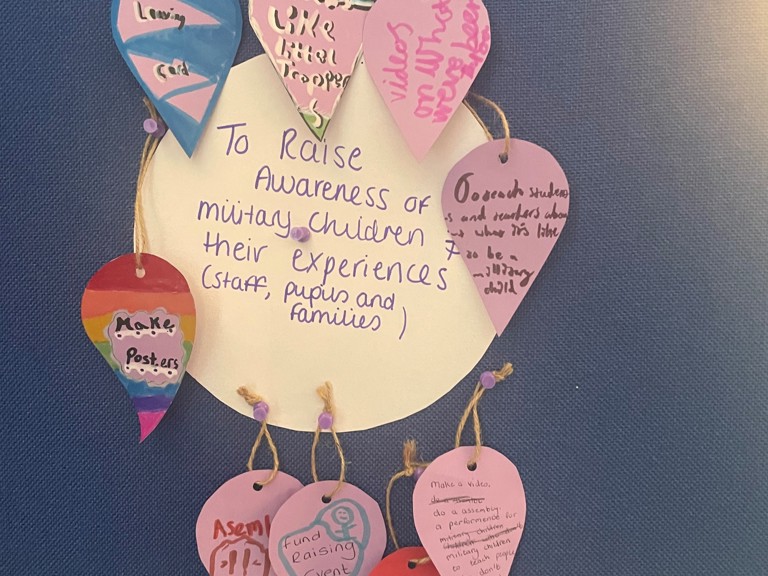 Leaving
Card
Like
little
Trooper
s
videos
on what
we've been
To Raise
Awareness of
military children
their experiences
(staff, pupils and
families)
To teach student
s and teachers abou
what it's like
to be a
military
child
Make
Posters
Asembl
fund
Raising
Event
Make a video.
do a assembly.
a performance for
military children
military children
to teach people
don't